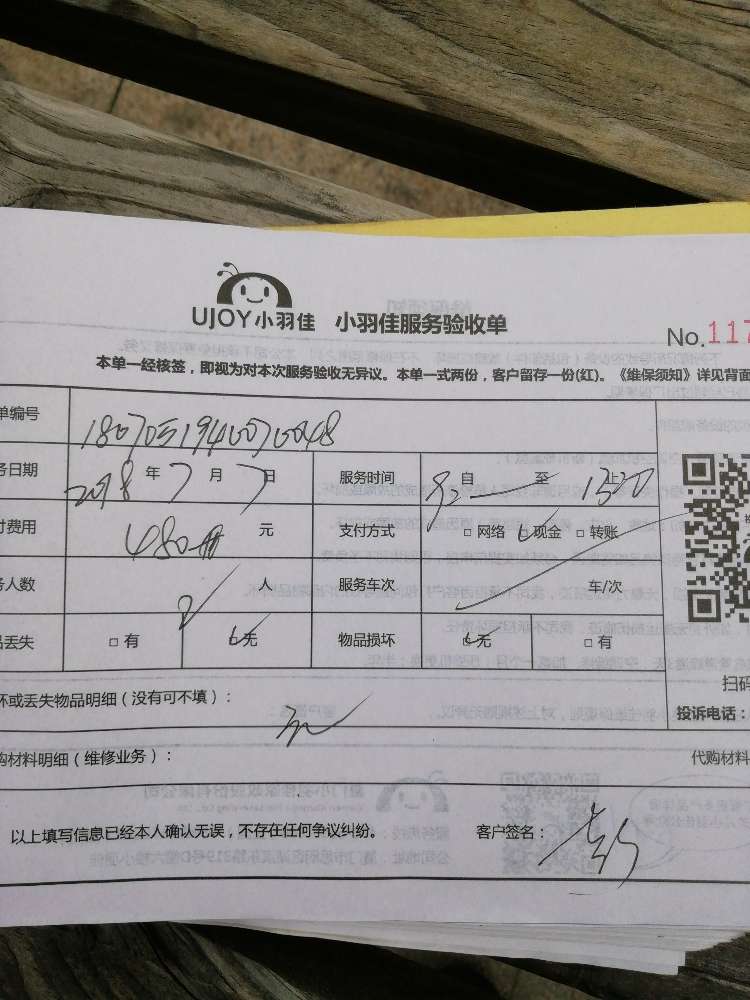 UJOY小羽佳 小羽佳服务验收单
No.117
本单一经核签，即视为对本次服务验收无异议。本单一式两份，客户留存一份(红)。《维保须知》详见背面
单编号 180705194007048
务日期 2018年7月7日 服务时间 自 至 1320
付费用 480 元 支付方式 □ 网络 □ 现金 □ 转账
务人数 2 人 服务车次 车/次
品丢失 □ 有 □ 无 物品损坏 □ 无 □ 有
坏或丢失物品明细（没有可不填）： 无
扫码
投诉电话：
购材料明细（维修业务）： 代购材料
以上填写信息已经本人确认无误，不存在任何争议纠纷。 客户签名：